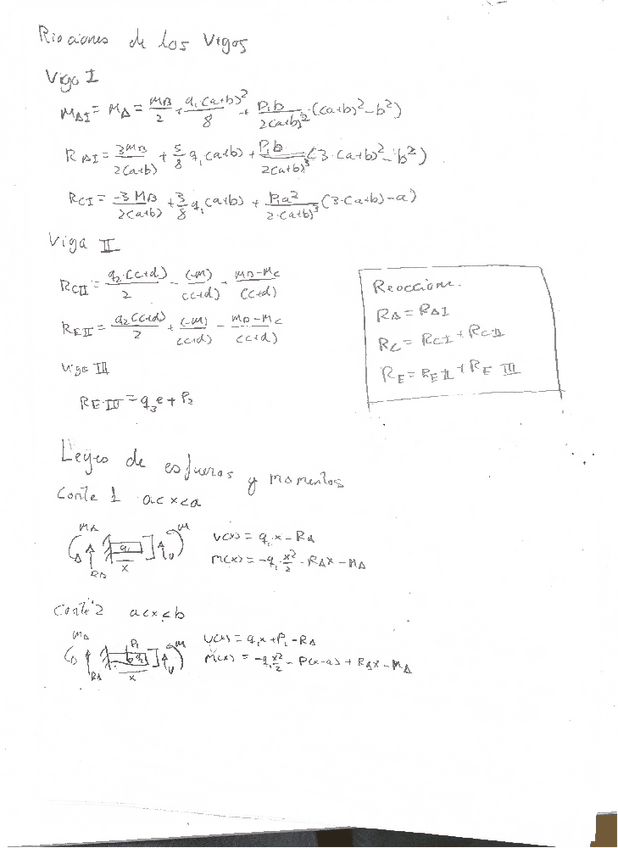 Riaciones de los Vigos
Viga I
M_AI = M_A = MB/2 + q₁(a+b)²/8 + P₁b/2(a+b)² · ((a+b)² - b²)
R_AI = 3MB/2(a+b) + 5/8 q₁(a+b) + P₁b/2(a+b)³ (3·(a+b)² - b²)
R_CI = -3MB/2(a+b) + 3/8 q₁(a+b) + P₁a²/2·(a+b)³ (3·(a+b) - a)
Viga II
R_CII = q₂·(c+d)/2 - (-M)/(c+d) - MB-Mc/(c+d)
R_EII = q₂(c+d)/2 + (-M)/(c+d) - MB-Mc/(c+d)
Viga III
R_EIII = q₃e + P₂
Reaccione.
R_A = R_AI
R_C = R_CI + R_CII
R_E = R_EII + R_E III
Leyes de esfueros y momentos
Corte 1 a<x<a
M_A q₁ M
R_A x V
V(x) = q₁·x - R_A
M(x) = -q₁·x²/2 - R_A x - M_A
Corte 2 a<x<b
M_A P₁ M
R_A x V
V(x) = q₁x + P₁ - R_A
M(x) = -q₁x²/2 - P(x-a) + R_A x - M_A